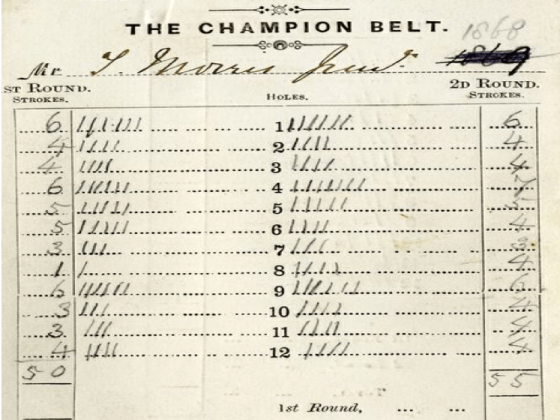 THE CHAMPION BELT.
1868
Mr T. Morris Junr. 1869
ST ROUND. 2D ROUND.
STROKES. HOLES. STROKES.
6 1 6
4 2 4
4 3 4
6 4 7
5 5 5
5 6 4
3 7 3
1 8 4
6 9 6
3 10 4
3 11 4
4 12 4
50 55
1st Round,